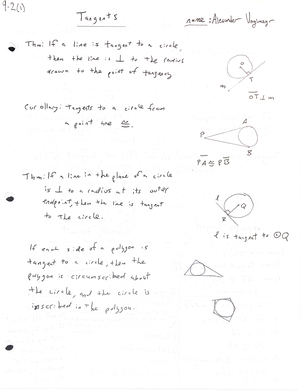 9-2(1)
Tangents
name: Alexander
Thm: If a line is tangent to a circle,
then the line is ⊥ to the radius
drawn to the point of tangency
O
T
m
OT ⊥ m
Corollary: Tangents to a circle from
a point are ≅.
A
P
B
PA ≅ PB
Thm: If a line in the plane of a circle
is ⊥ to a radius at its outer
endpoint, then the line is tangent
to the circle.
l
Q
R
l is tangent to ⊙Q
If each side of a polygon is
tangent to a circle, then the
polygon is circumscribed about
the circle, and the circle is
inscribed in the polygon.